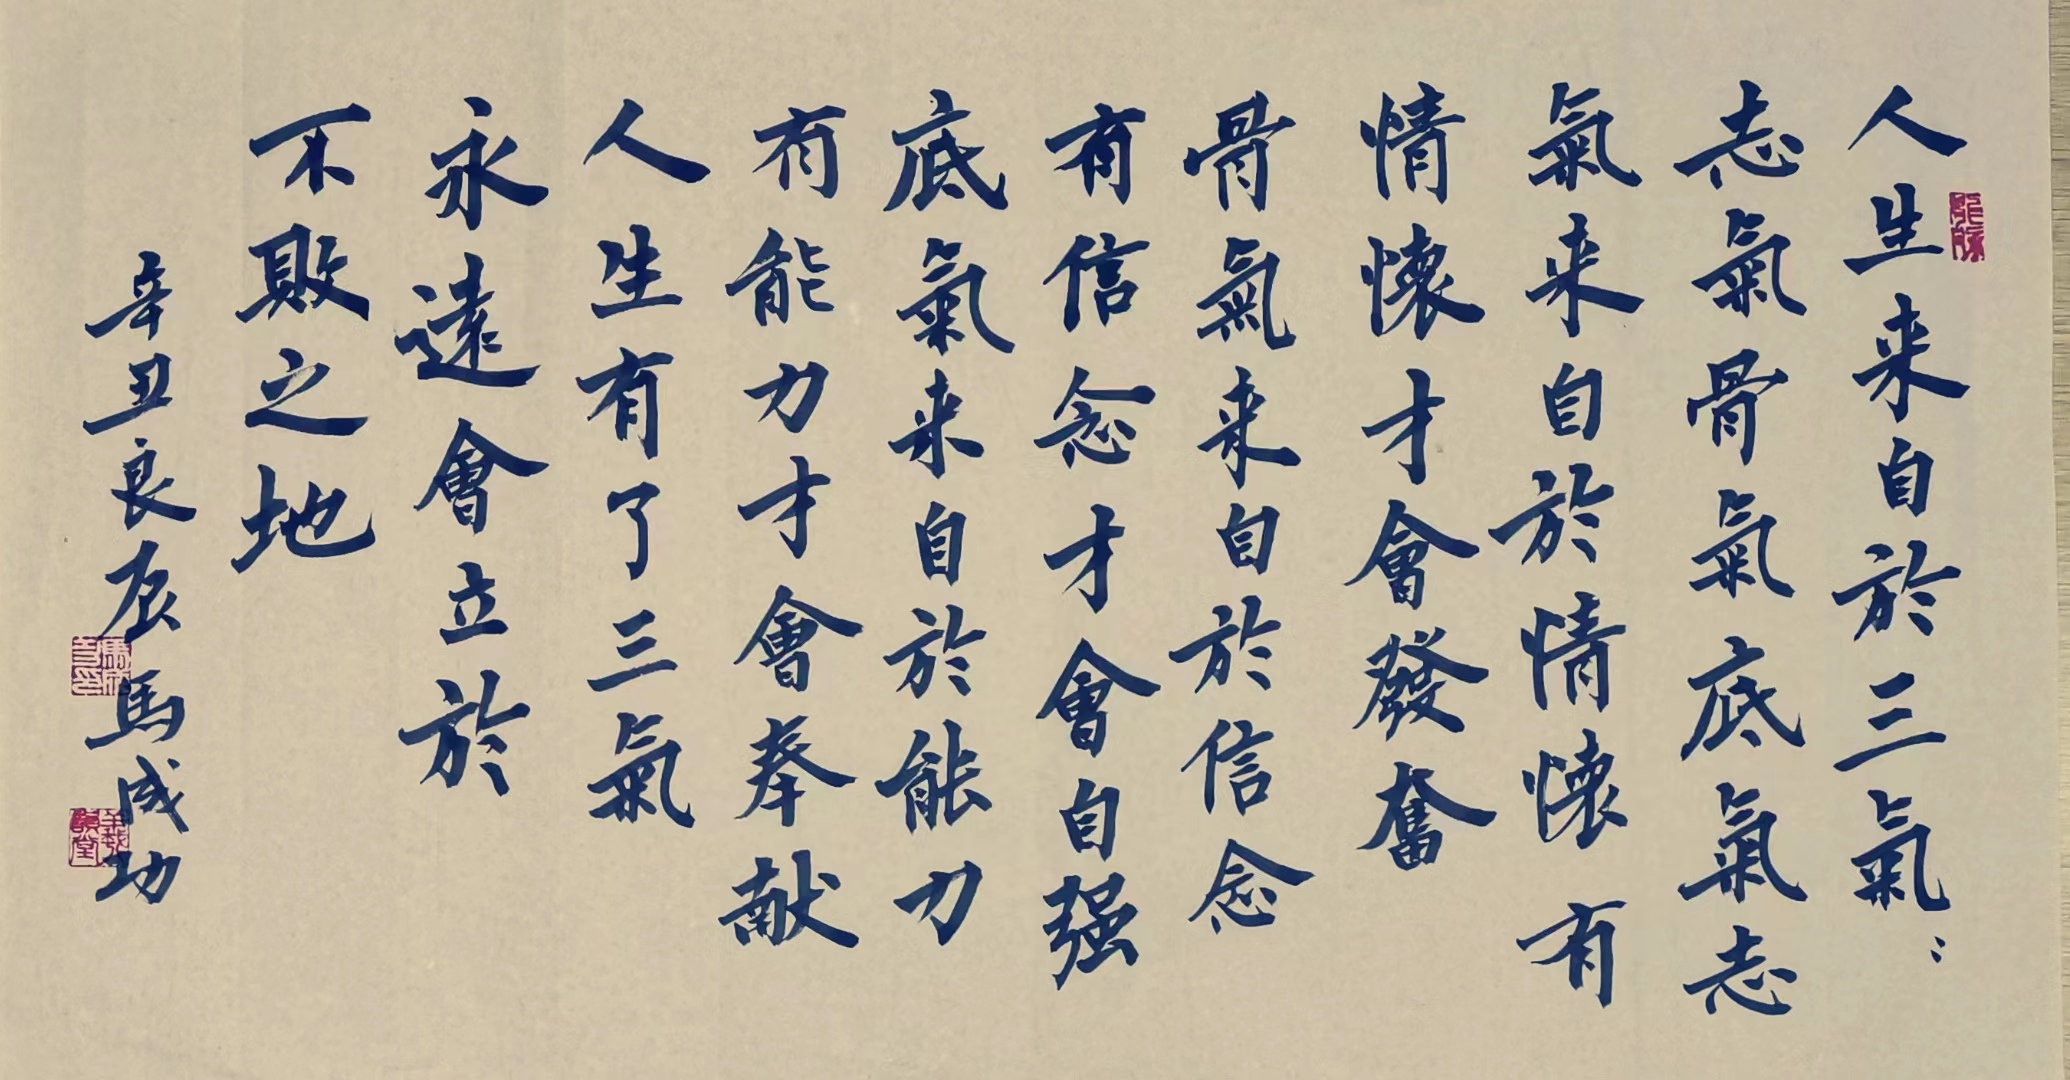 人生来自於三氣:
志氣骨氣底氣志
氣来自於情懷有
情懷才會發奮
骨氣来自於信念
有信念才會自强
底氣来自於能力
有能力才會奉献
人生有了三氣
永遠會立於
不敗之地
辛丑良辰馬成功